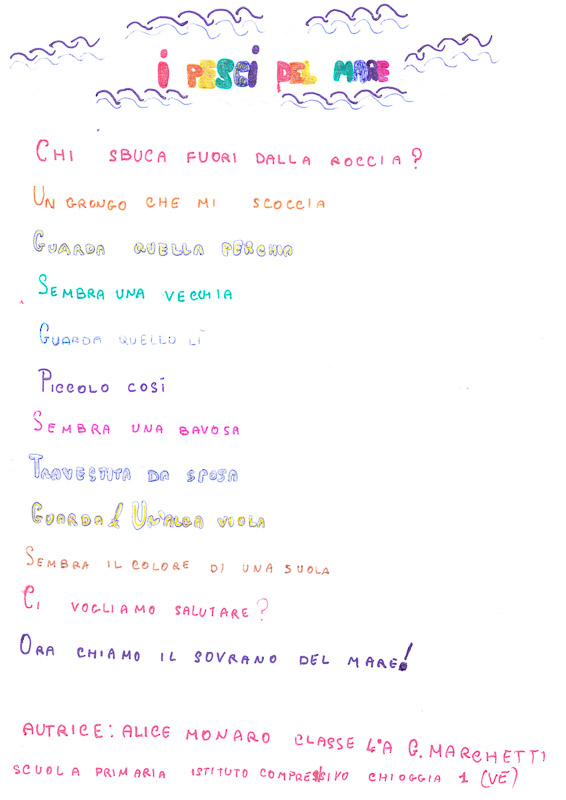 I PESCI DEL MARE
CHI SBUCA FUORI DALLA ROCCIA?
UN GRONGO CHE MI SCOCCIA
GUARDA QUELLA PERCHIA
SEMBRA UNA VECCHIA
GUARDA QUELLO LÌ
PICCOLO COSÍ
SEMBRA UNA BAVOSA
TRAVESTITA DA SPOSA
GUARDA! UN'ALGA VIOLA
SEMBRA IL COLORE DI UNA SUOLA
CI VOGLIAMO SALUTARE?
ORA CHIAMO IL SOVRANO DEL MARE!
AUTRICE: ALICE MONARO CLASSE 4°A G. MARCHETTI
SCUOLA PRIMARIA ISTITUTO COMPRESIVO CHIOGGIA 1 (VE)